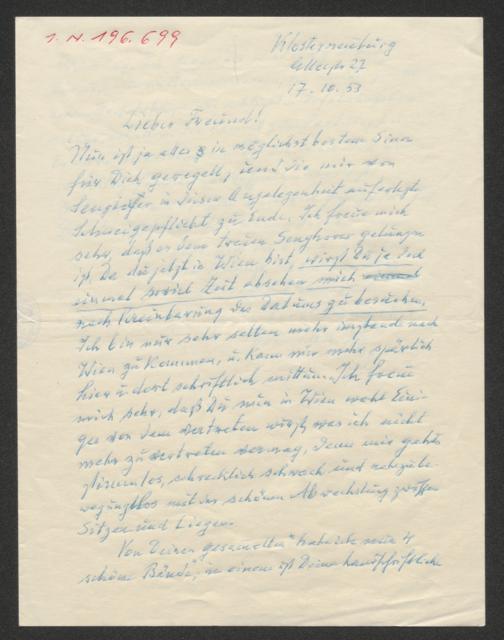 I. N. 196.699
Klosterneuburg
27
17. 10. 53
Lieber Freund!
Nun ist ja alles in möglichst bestem Sinne
für Dich geregelt, und die mir von
in dieser Angelegenheit auferlegte
Schweigepflicht zu Ende. Ich freue mich
sehr, daß es dem treuen gelungen
ist. Da du jetzt in Wien bist, wirst Du ja doch
einmal soviel Zeit absehen mich
nach Vereinbarung des Datums zu besuchen.
Ich bin nur sehr selten mehr imstande nach
Wien zu kommen, u. kann nur mehr spärlich
hier u. dort schriftlich mittun. Ich freue
mich sehr, daß Du nun in Wien wohl Eini-
ges von dem vertreten wirst, was ich nicht
mehr zu vertreten vermag, denn mir gehts
schrecklich schwach und nahezu be-
wegungslos mit der schönen Abwechslung zwischen
Sitzen und Liegen.
Von Deinen "gesammelten" habe ich nun 4
schöne Bände, in einem ist Deine handschriftliche